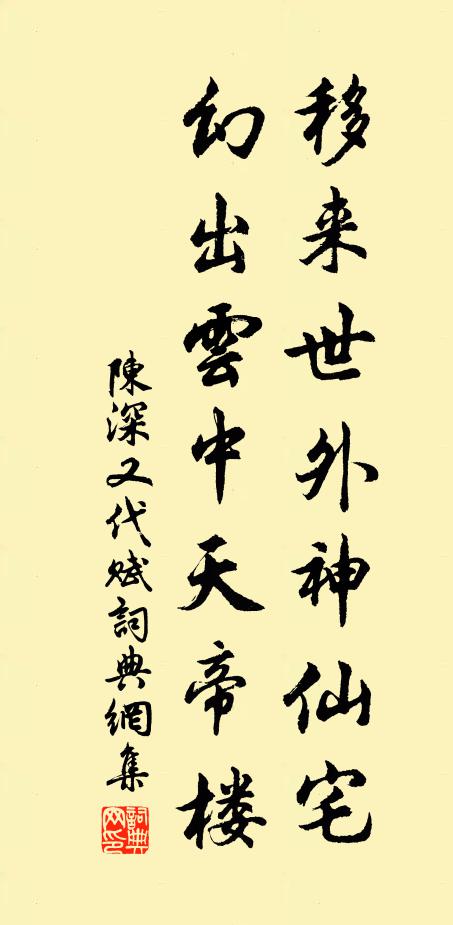 移来世外神仙宅
幻出雲中天帝楼
陳深又代賦詞典網集
詞典網印